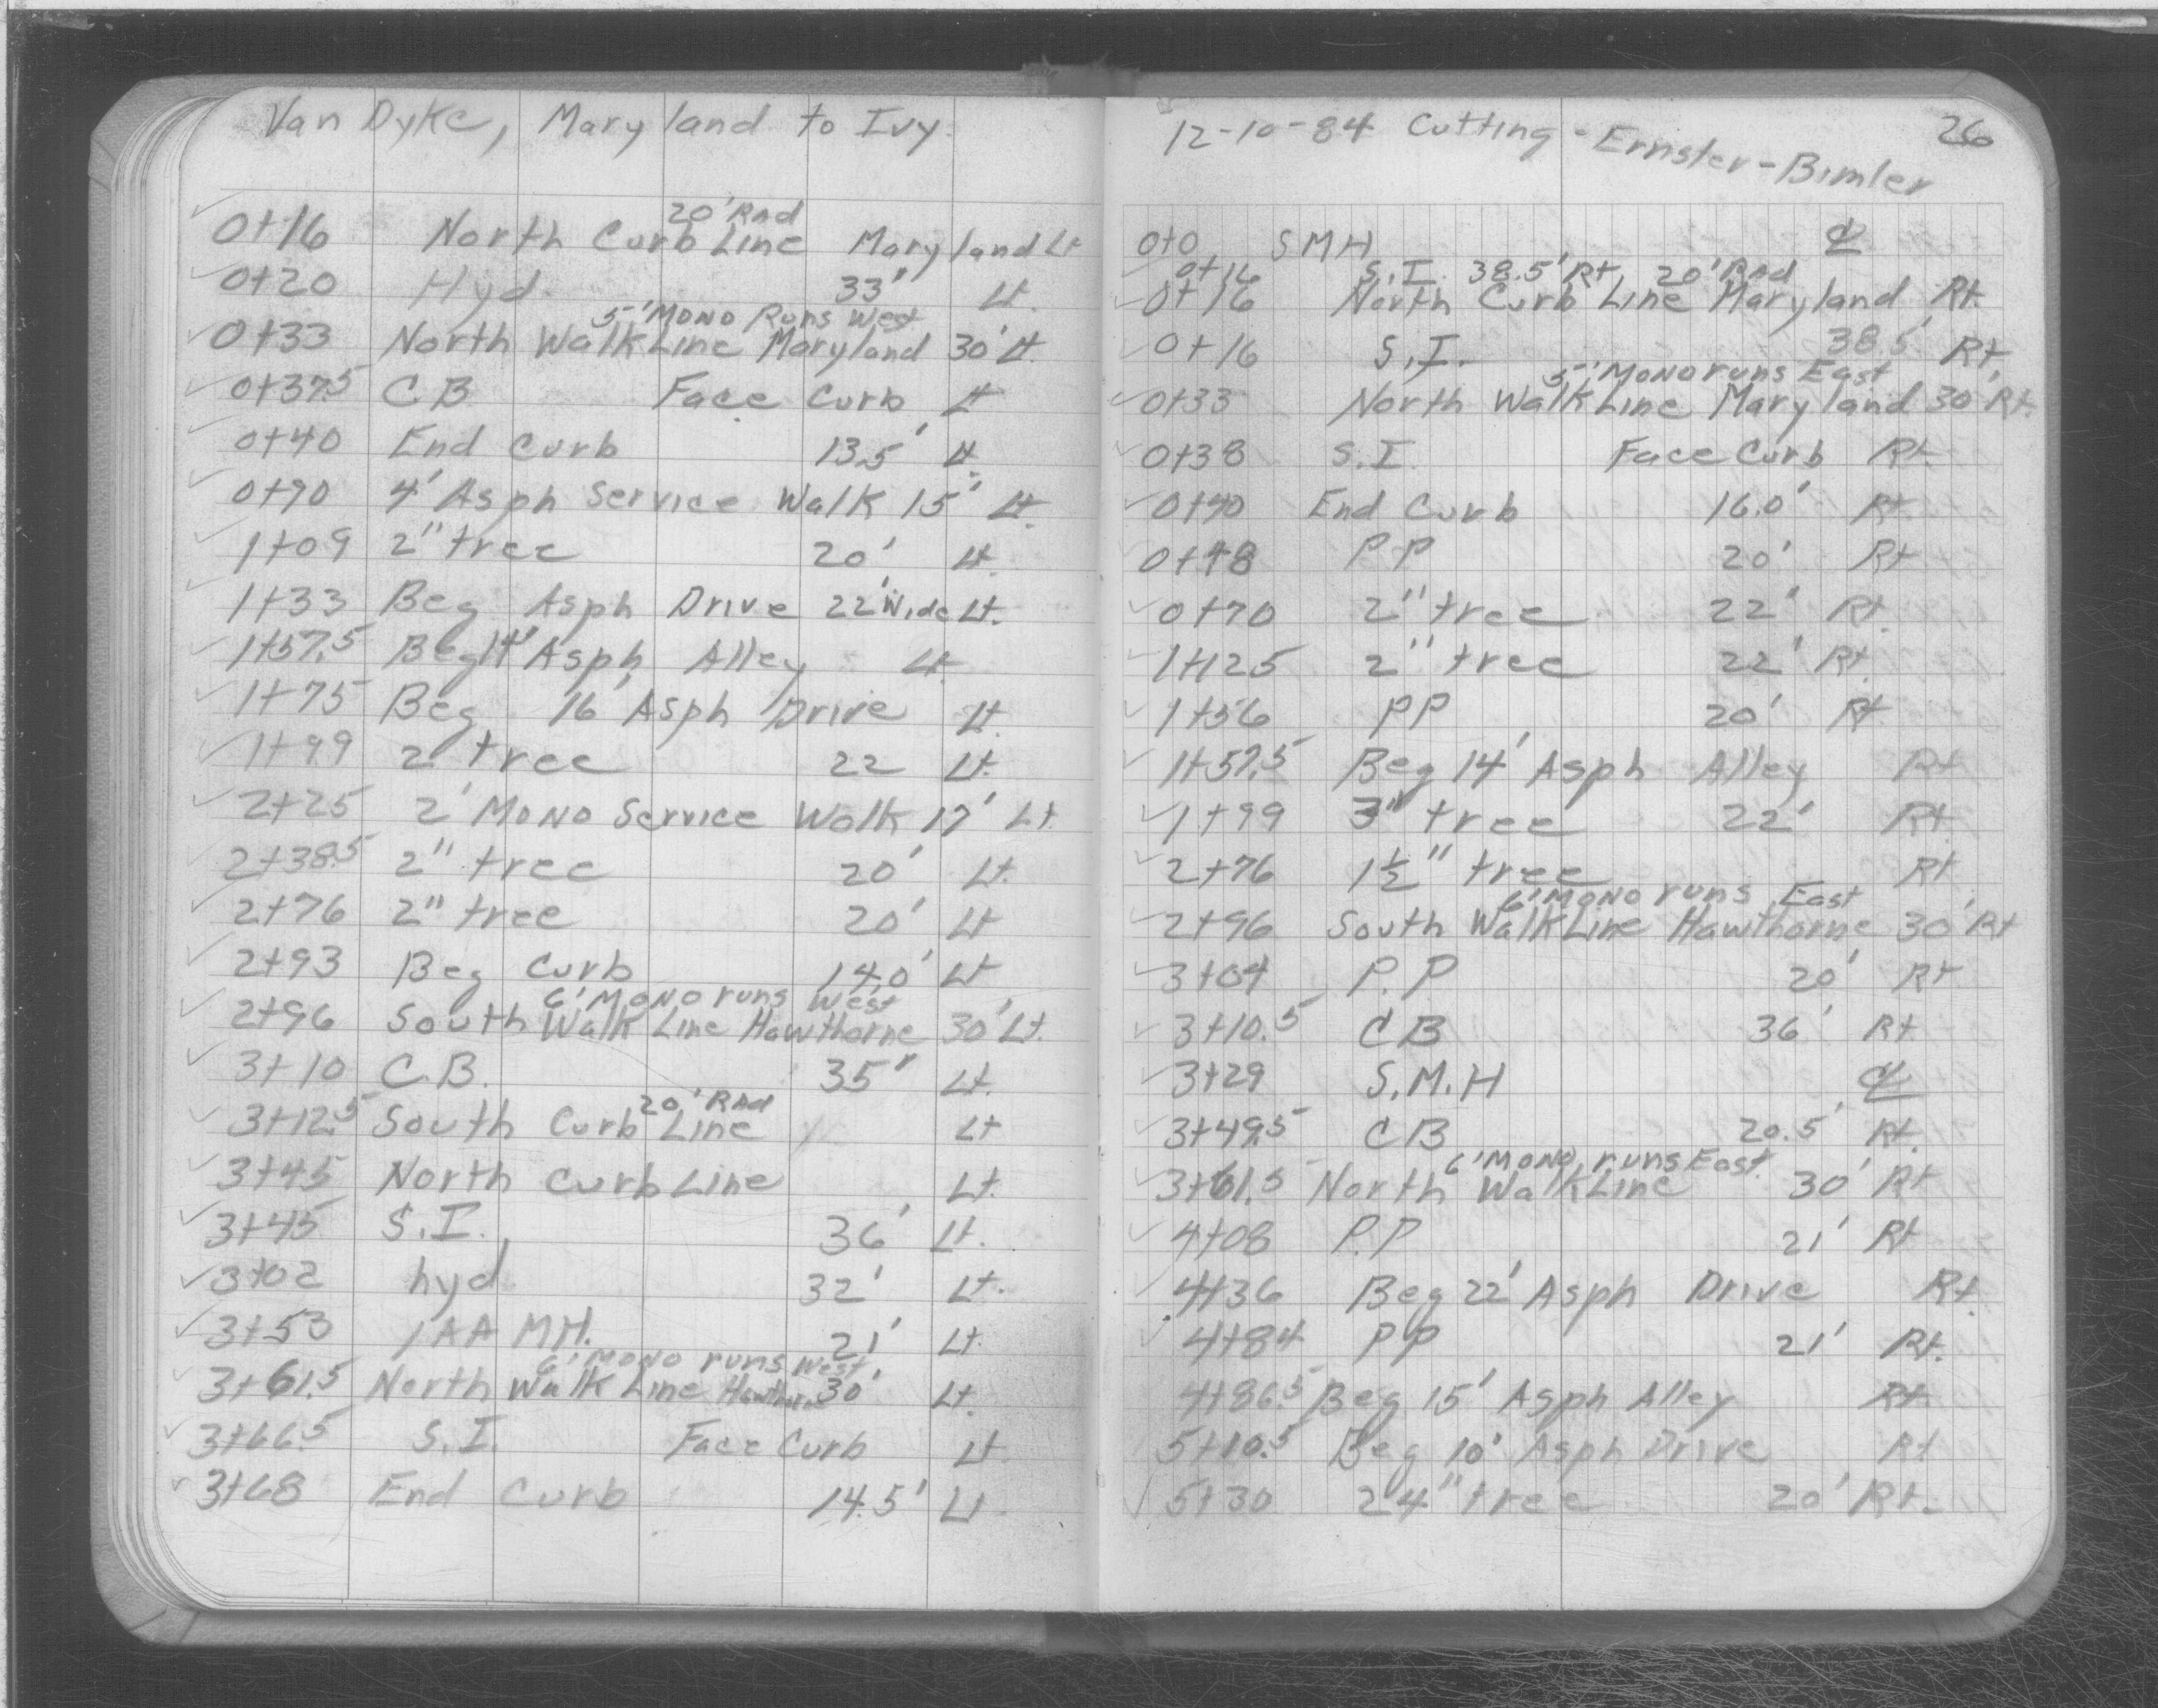 Van Dyke, Maryland to Ivy.
20' Rad
0+16 North Curb Line Maryland Lt
0+20 Hyd. 33" Lt.
5' Mono Runs West
0+33 North Walk Line Maryland 30' Lt.
0+37.5 CB Face Curb Lt
0+40 End Curb 13.5' Lt.
0+90 4' Asph Service Walk 15' Lt.
1+09 2" tree 20' Lt.
1+33 Beg Asph Drive 22' Wide Lt.
1+57.5 Beg 14' Asph Alley Lt.
1+75 Beg 16' Asph Drive Lt.
1+99 2" tree 22 Lt.
2+25 2' Mono Service Walk 17' Lt.
2+38.5 2" tree 20' Lt.
2+76 2" tree 20' Lt
2+93 Beg Curb 14.0' Lt
6' Mono runs West
2+96 South Walk Line Hawthorne 30' Lt.
3+10 C.B. 35" Lt.
20' Rad
3+12.5 South Curb Line Lt
3+45 North Curb Line Lt.
3+45 S.I. 36' Lt.
3+02 hyd 32' Lt.
3+53 1AA MH. 21' Lt.
6' Mono runs West
3+61.5 North Walk Line Hawthorne 30' Lt.
3+66.5 S.I. Face Curb Lt
3+68 End Curb 14.5' Lt
12-10-84 Cutting - Ernster - Bimler 26
0+0 SMH ℄
0+16 S.I. 38.5' Rt, 20' Rad
0+16 North Curb Line Maryland Rt.
0+16 S.I. 38.5' Rt.
5' Mono runs East
0+33 North Walk Line Maryland 30' Rt.
0+38 S.I. Face Curb Rt.
0+40 End Curb 16.0' Rt
0+48 P.P 20' Rt
0+70 2" tree 22' Rt.
1+125 2" tree 22' Rt.
1+56 PP 20' Rt
1+57.5 Beg 14' Asph Alley Rt
1+99 3" tree 22' Rt
2+76 1½" tree Rt
6' Mono runs East
2+96 South Walk Line Hawthorne 30' Rt
3+04 P.P 20' Rt
3+10.5 CB 36' Rt
3+29 S.M.H ℄
3+49.5 CB 20.5' Rt.
6' Mono runs East
3+61.5 North Walk Line 30' Rt
4+08 P.P 21' Rt
4+36 Beg 22' Asph Drive Rt.
4+84 PP 21' Rt.
4+86.5 Beg 15' Asph Alley Rt.
5+10.5 Beg 10' Asph Drive Rt
5+30 24" tree 20' Rt.